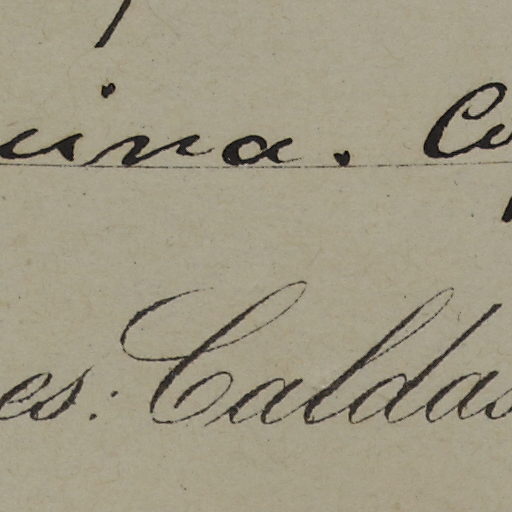 uina. Co
es: Caldas